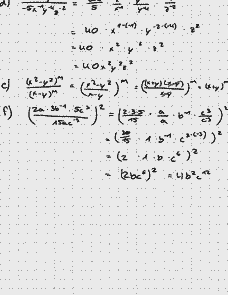 d) -5x⁻¹y⁻⁴z⁻²
= 40 · x¹⁻⁽⁻¹⁾ · y⁻²⁻⁽⁻⁴⁾ · z²
= 40 · x² · y² · z²
= 40x²y²z²
e) (x²-y²)ᵐ / (x-y)ᵐ = (x²-y² / x-y)ᵐ = ((x+y)(x-y) / x-y)ᵐ = (x+y)ᵐ
f) (2a · 3b⁻¹ · 5c³ / 15ac⁻³)² = (2·3·5 / 15 · a/a · b⁻¹ · c³/c⁻³)²
= (30/15 · 1 · b⁻¹ · c³⁻⁽⁻³⁾)²
= (2 · 1 · b · c⁶)²
= (2bc⁶)² = 4b²c¹²